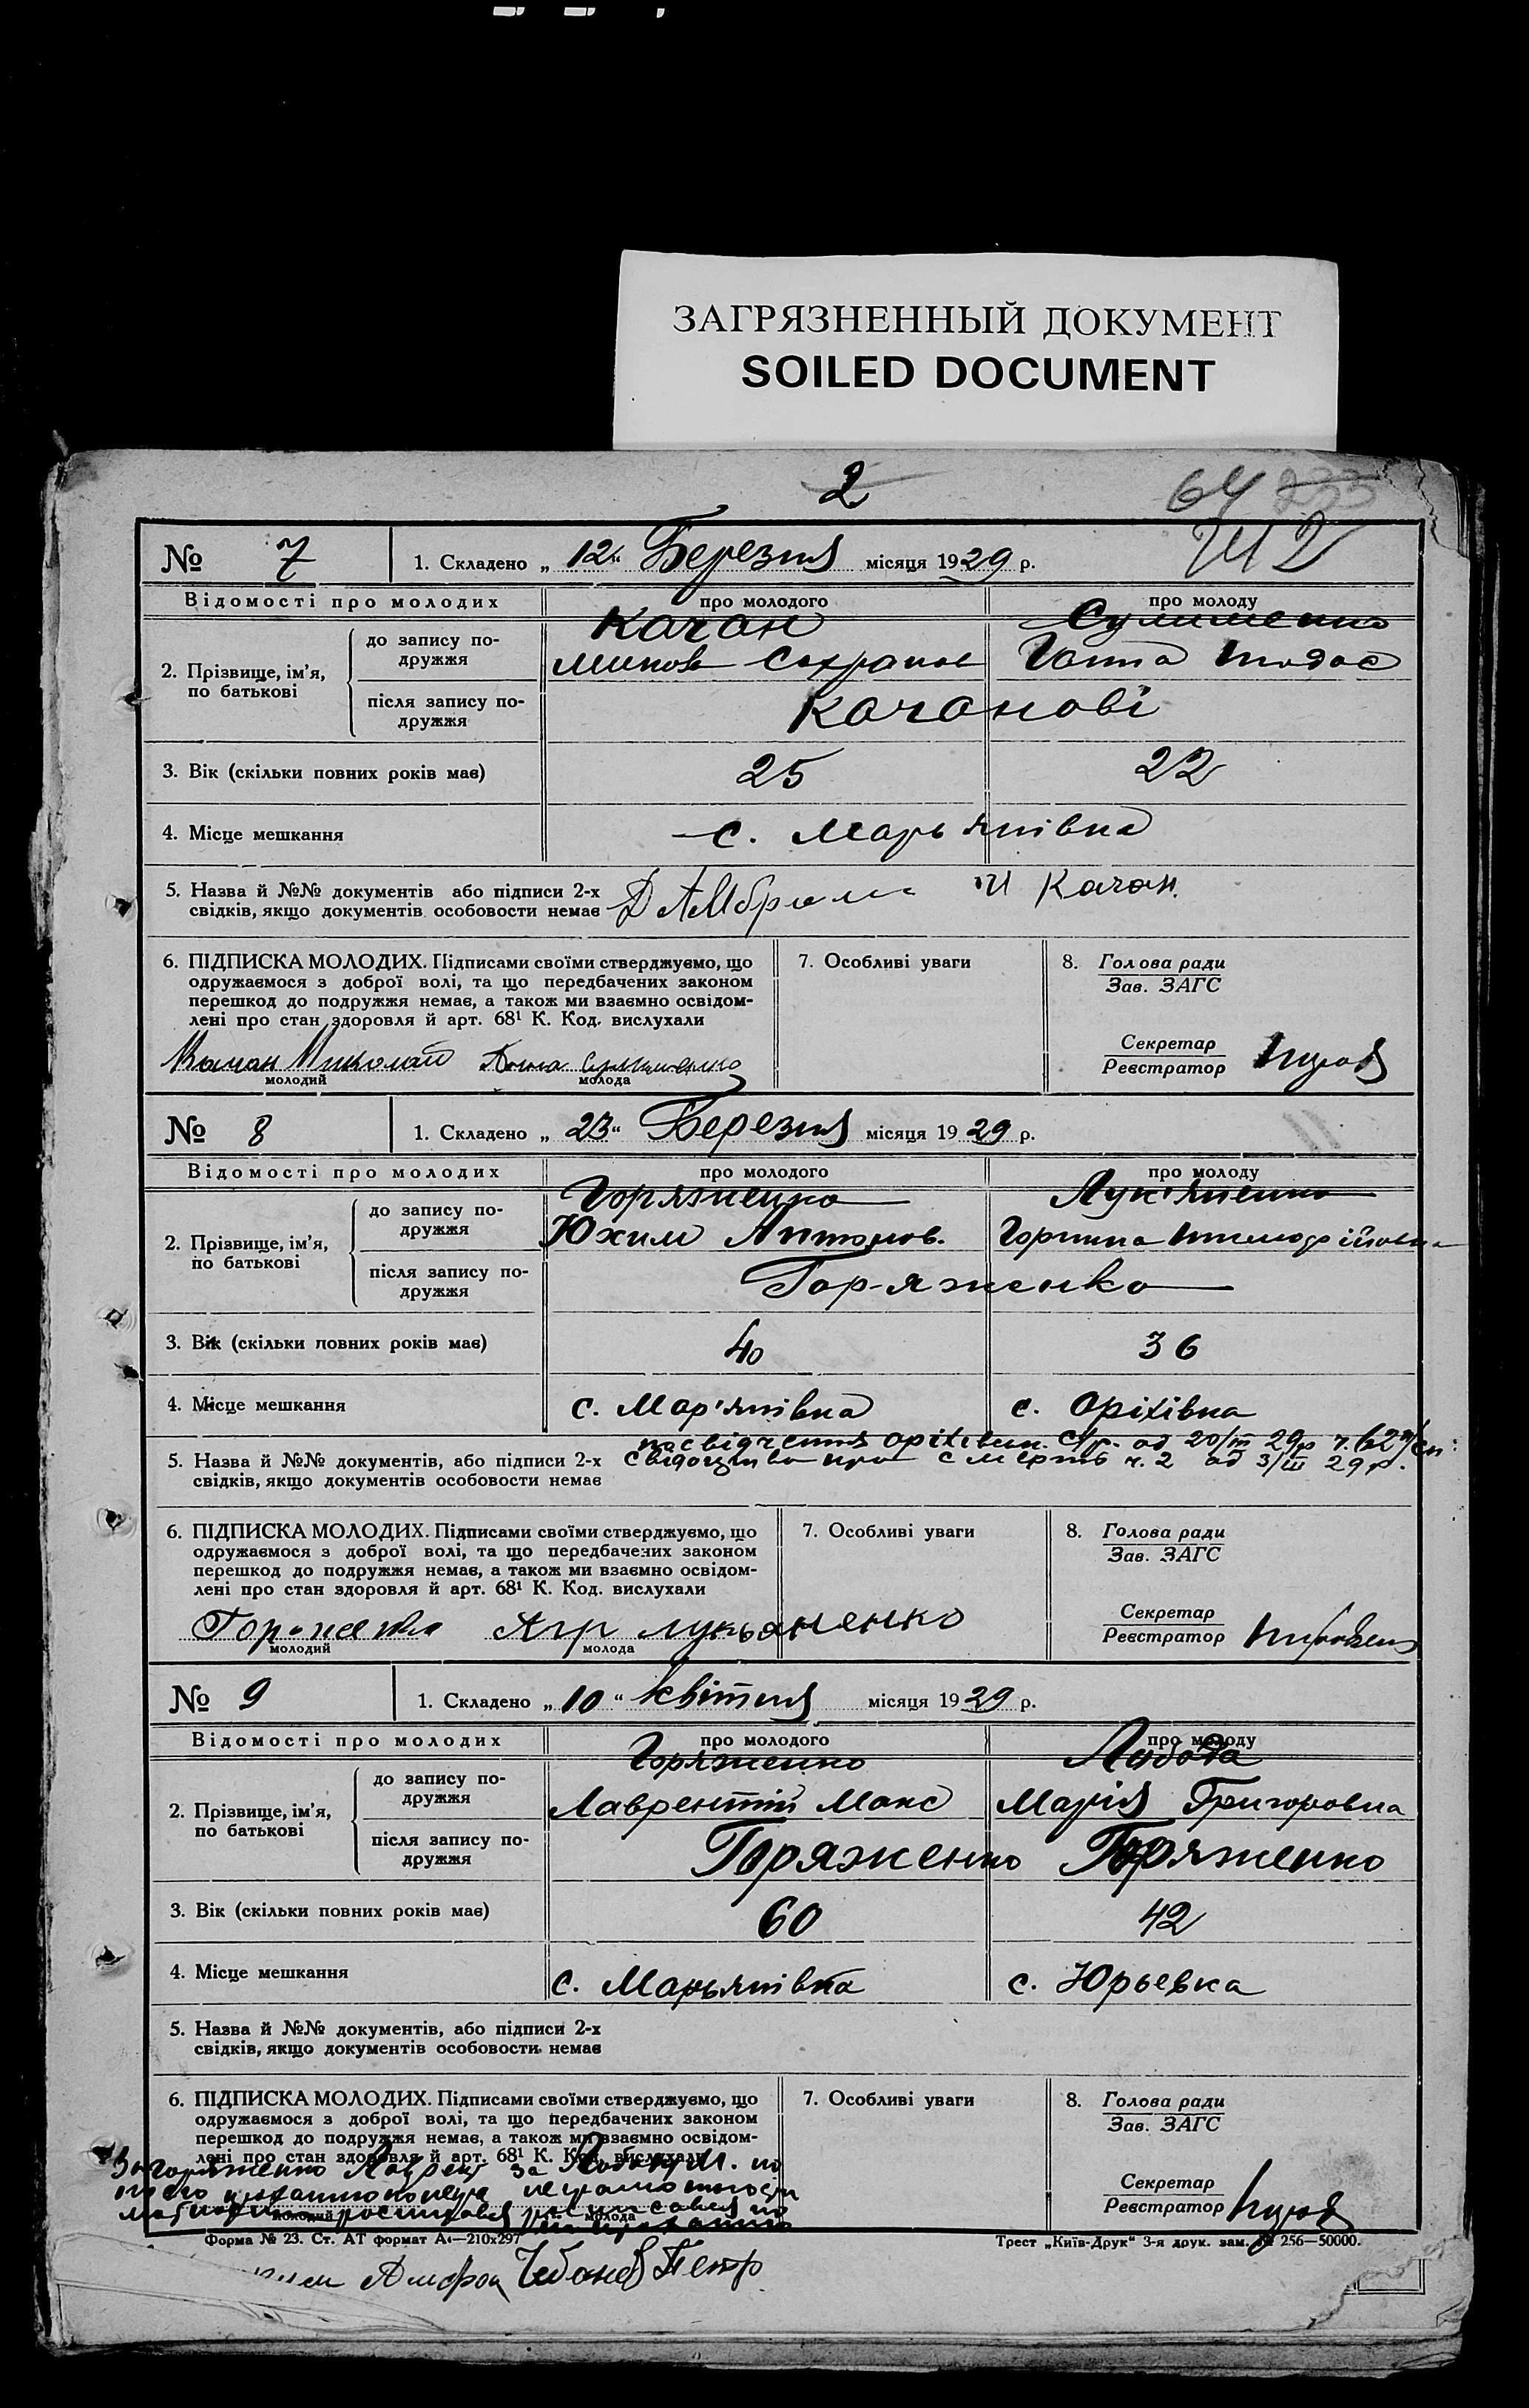 ЗАГРЯЗНЕННЫЙ ДОКУМЕНТ
SOILED DOCUMENT
2
64
№ 7 1. Складено „12“ Березня місяця 1929 р.
Відомості про молодих про молодого про молоду
2. Прізвище, ім’я, по батькові
до запису подружжя
Качан
Ганна
після запису подружжя
Качанові
3. Вік (скільки повних років має) 25 22
4. Місце мешкання с. Марьянівка
5. Назва й №№ документів або підписи 2-х И Качан.
свідків, якщо документів особовости немає
6. ПІДПИСКА МОЛОДИХ. Підписами своїми стверджуємо, що
одружаємося з доброї волі, та що передбачених законом
перешкод до подружжя немає, а також ми взаємно освідом-
лені про стан здоровля й арт. 68¹ К. Код. вислухали
Качан Миколай Анна
молодий молода
7. Особливі уваги
8. Голова ради
Зав. ЗАГС
Секретар
Реєстратор
№ 8 1. Складено „23“ Березня місяця 1929 р.
Відомості про молодих про молодого про молоду
2. Прізвище, ім’я, по батькові
до запису подружжя
Горяженко Лук'яненко
Юхим Антонов. Горпина
після запису подружжя
Горяженко
3. Вік (скільки повних років має) 40 36
4. Місце мешкання с. Мар'янівка с. Оріхівка
посвідчення Оріхівськ. с/р. од 20/III 29р ч. 62
5. Назва й №№ документів, або підписи 2-х свідоцтво про смерть ч. 2 од 3/III 29 р.
свідків, якщо документів особовости немає
6. ПІДПИСКА МОЛОДИХ. Підписами своїми стверджуємо, що
одружаємося з доброї волі, та що передбачених законом
перешкод до подружжя немає, а також ми взаємно освідом-
лені про стан здоровля й арт. 68¹ К. Код. вислухали
Агр лукьяненко
молодий молода
7. Особливі уваги
8. Голова ради
Зав. ЗАГС
Секретар
Реєстратор
№ 9 1. Складено „10“ квітня місяця 1929 р.
Відомості про молодих про молодого про молоду
2. Прізвище, ім’я, по батькові
до запису подружжя
Горяженко Лобода
Лаврентій Макс Марія Григоровна
після запису подружжя
Горяженко Горяженко
3. Вік (скільки повних років має) 60 42
4. Місце мешкання с. Марьянівка с. Юрьевка
5. Назва й №№ документів, або підписи 2-х
свідків, якщо документів особовости немає
6. ПІДПИСКА МОЛОДИХ. Підписами своїми стверджуємо, що
одружаємося з доброї волі, та що передбачених законом
перешкод до подружжя немає, а також ми взаємно освідом-
лені про стан здоровля й арт. 68¹ К. Код. вислухали
За горяженко за Лобода М. по
молодий молода
7. Особливі уваги
8. Голова ради
Зав. ЗАГС
Секретар
Реєстратор
Форма № 23. Ст. АТ формат А4—210х297
Трест „Київ-Друк“ 3-я друк. зам. № 256—50000.
Петр